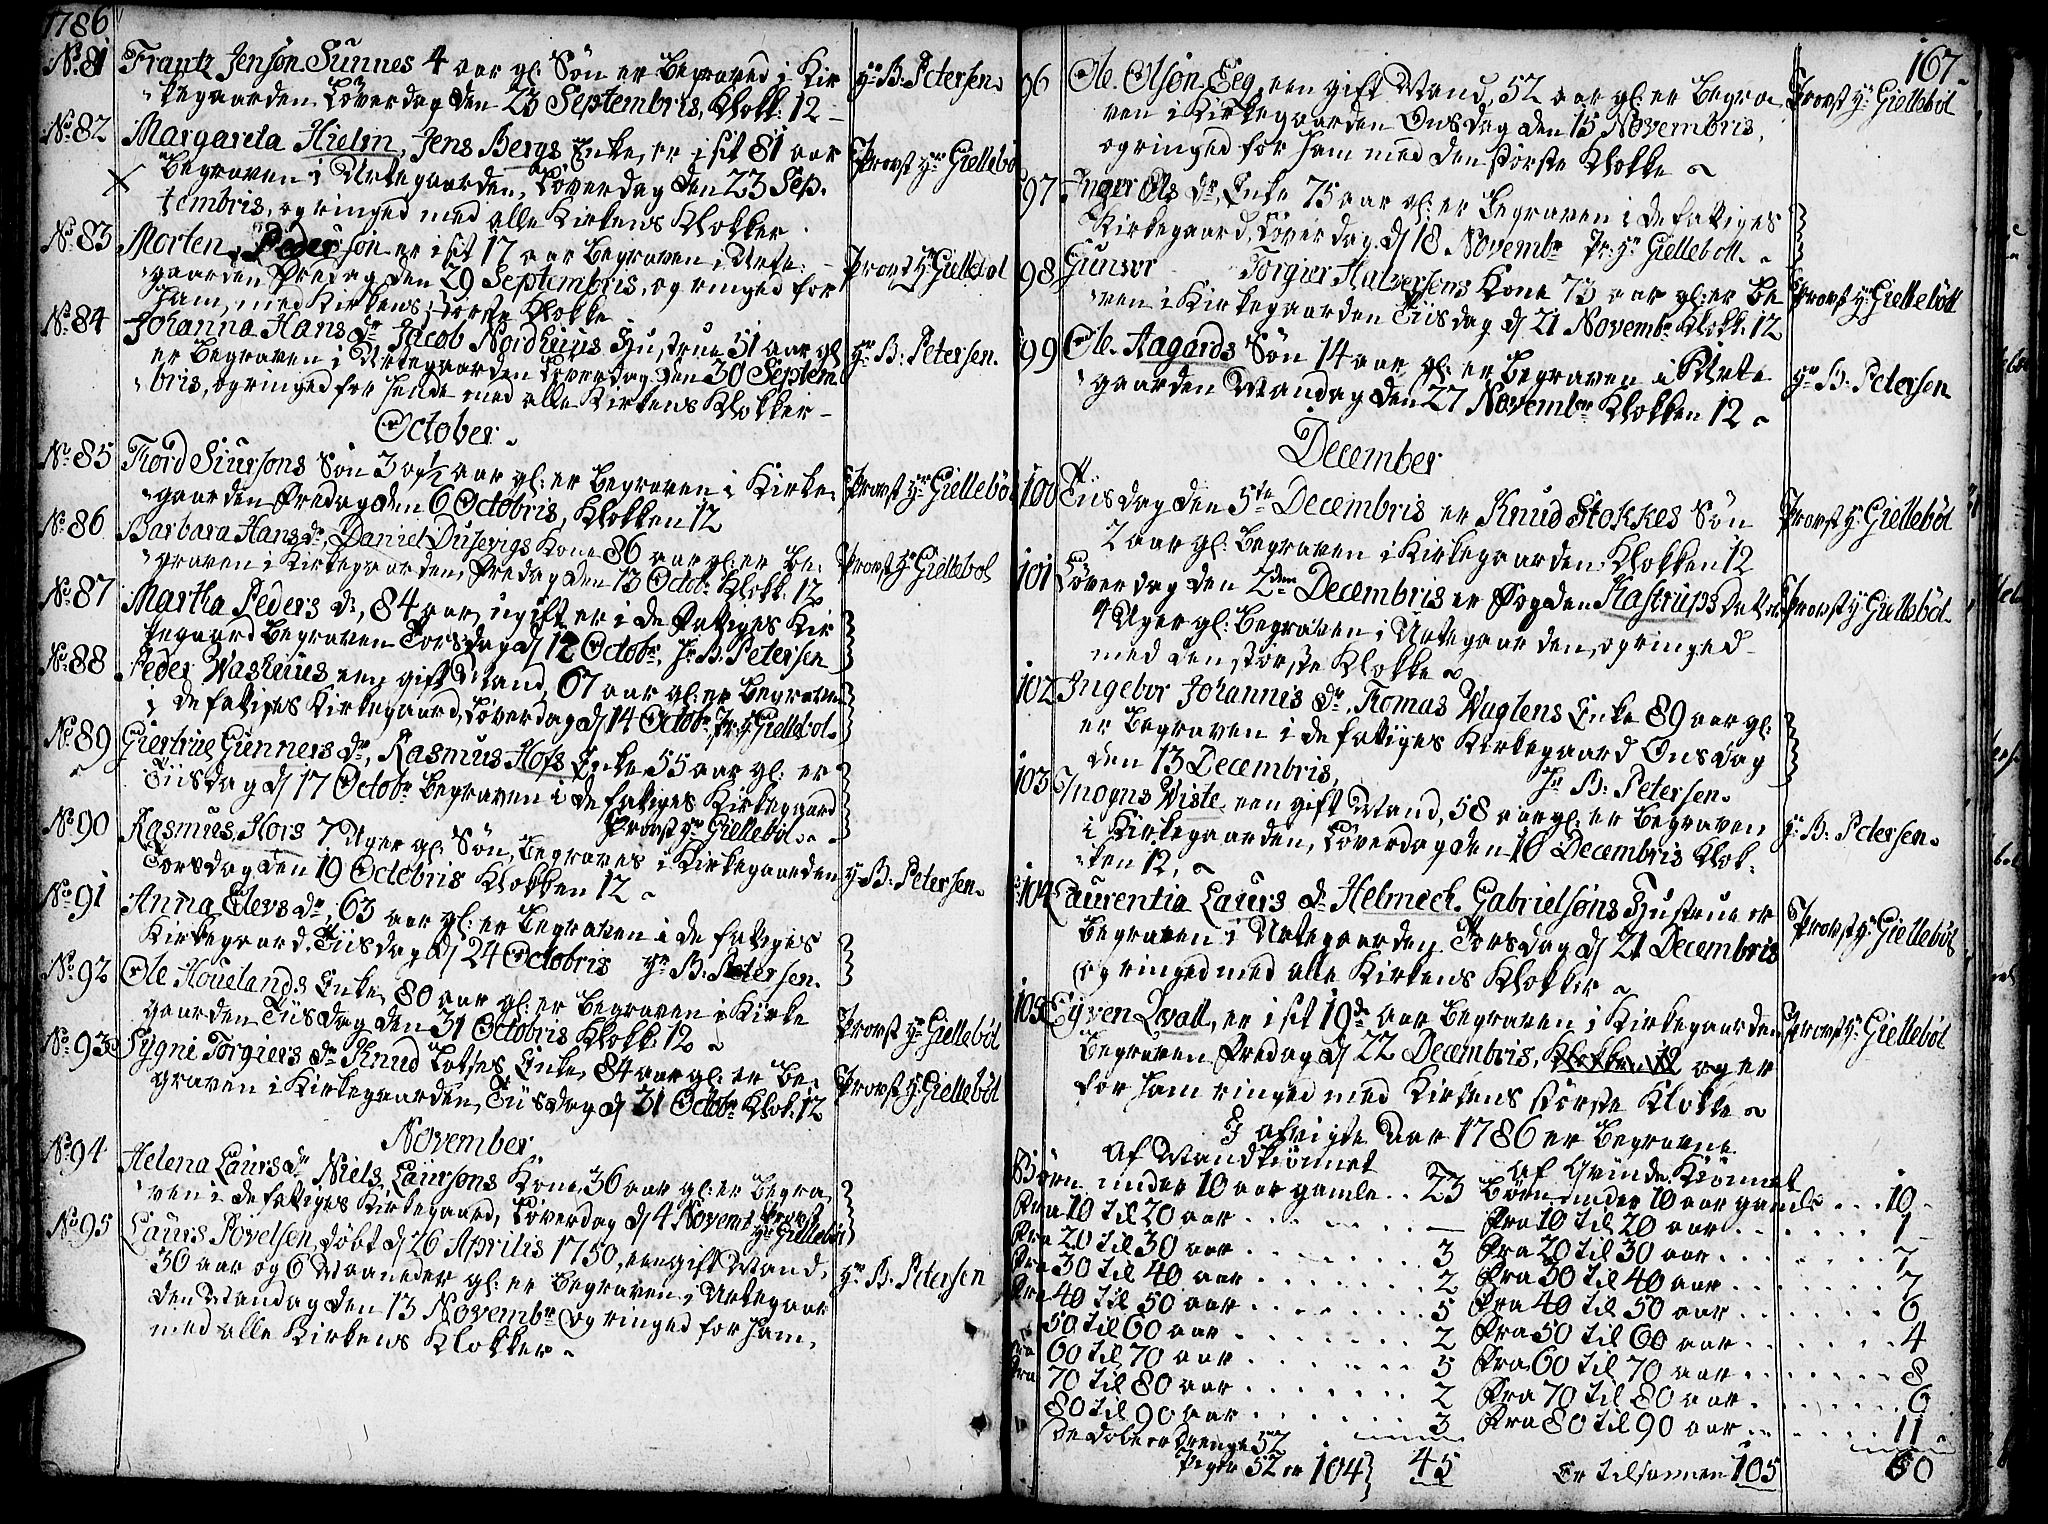 1786
No. 81 Frantz Jensøn Sunnes 4 aar gl: Søn er Begraved i Kir
kegaarden Løverdag den 23 Septembris, Klokk: 12 – Hr. B. Petersen.
No 82 Margareta Hielm, Jens Bergs Enke, er i sit 81 aar
Begraven i Urtegaarden, Løverdag den 23 Sep. Provst Hr Giellebøl
tembris, og ringed med alle Kirkens Klokker.
No 83 Morten Pedersøn er i sit 17 aar Begraven i Urte:
gaarden Fredag den 29 Septembris, og ringed for Provst Hr Giellebøl
Ham, med Kirkens største Klokke
No. 84 Johanna Hans Dr Jacob Nordhuus Hustrue 51 aar gl.
er Begraven i Urtegaarden Løverdag den 30 Septem Hr B: Petersen.
bris, og ringed for Hende med alle Kirkens Klokker –
October
No. 85 Tiord Siursons Søn 3 og ½ aar gl: er Begraven i Kirke. Provst Hr Giellebøl
gaarden Fredag den 6 Octobris, Klokken 12
No 86 Barbara Hans dr, Daniel Dusevigs Kone 86 aar gl: er Be:
graven i Kirkegaarden, Fredag den 13 Octobr Klokk: 12 Provst Hr Giellebøl
No. 87 Martha Peders dr, 84 aar, ugift er i de Fattiges Kir
kegaard Begraven Torsdag d/ 12 Octobr, Hr. B. Petersen
No. 88 Peder Washuus een gift Mand, 67 aar gl: er Begraven
i de fattiges Kirkegaard, Løverdag d/ 14 Octobr Pr: Hr Giellebøl.
No. 89 Giertrue Gunners dr, Rasmus Hofs Enke 55 aar gl: er
Tiisdag d/ 17 Octobr Begraven i de fattiges Kirkegaard
Provst Hr Giellebøl.
No 90 Rasmus Hors 7 Uger gl: Søn, Begraves i Kirkegaarden
Torsdag den 19 Octobris Klokken 12 Hr. B: Petersen.
No 91 Anna Elevs dr, 63 aar gl: er Begraven i de fattiges
Kirkegaard. Tiisdag d/ 24 Octobris Hr. B: Petersen.
No 92 Ole Houelands Enke, 80 aar gl: er Begraven i Kirke
gaarden Tiisdag den 31 Octobris Klokk: 12 Provst Hr Giellebøl
No. 93 Sygni Torgiers dr Knud Lotses Enke, 84 aar gl: er Be:
graven i Kirkegaarden, Tiisdag d/ 31 Octobr Klok. 12 Provst Hr Giellebøl
November
No 94 Helena Laurs dr Niels Laursons Kone, 36 aar gl: er Begra
ven i de fattiges Kirkegaard, Løverdag d/ 4 Novemb Provst
Hr Giellebøl
No 95 Laurs Povelsen, døbt d/ 26 Aprilis 1750, een gift Mand,
36 aar og 6 Maaneder gl: er Begraven i Urtegaar Hr B: Petersen
den Mandag den 13 Novembr og ringed for Ham,
med alle Kirkens Klokker
167
96 Ole Olsøn Eeg, een gift Mand, 52 aar gl: er Begra Provst Hr Giellebøl
ven i Kirkegaarden Onsdag den 15 Novembris,
og ringed for Ham med den største Klokke
97 Inger Ols dr, Enke 75 aar gl: er Begraven i de fattiges
Kirkegaard, Løverdag. d/ 18 Novembr Pr: Hr Giellebøll.
98 Gunvor Torgier Halversens Kone 73 aar gl: er Be
ven i Kirkegaarden Tiisdag d/ 21 Novembr Klokk: 12 Provst Hr Giellebøll
99 Ole Aagards Søn 14 aar gl: er Begraven i Urte
gaarden Mandag den 27 Novembr Klokken 12 Hr B: Petersen
December
100 Tiisdag den 5te Decembris er Knud Stokkes Søn Provst Hr Giellebøl
2 aar gl: Begraven i Kirkegaarden Klokken 12
101 Løverdag den 2den Decembris er Fogden Kastrups Datter Provst Hr Giellebøl.
4 Uger gl: Begraven i Urtegaarden, og ringed
med den største Klokke
102 Ingebor Johannis dr. Tomas Wagtens Enke 89 aar gl:
er Begraven i de fattiges Kirkegaard Onsdag
den 13 Decembris, Hr B: Petersen.
103 Mogns Viste, een gift Mand, 58 aar gl: er Begraven
i Kirkegaarden, Løverdag den 16 Decembris Klok: Hr B: Petersen.
ken 12,
104 Laurentia Laurs dr Helmech Gabrielsøns Hustrue er
Begraven i Urtegaarden Torsdag d/ 21 Decembris Provst Hr Giellebøl
og ringed med alle Kirkens Klokker
105 Eyven Qvall, er i sit 19de aar Begraven i Kirkegaarden Provst Hr Giellebøl
Begraven Fredag d/ 22 Decembris, Klokken 12 og er
for Ham ringed med Kirkens største Klokke
I afvigte Aar 1786 er Begravne
Af Mandkiønnet Af Qvinde Kiønnet
Børn under 10 aar gamle .. 23 Børn under 10 aar gamle ... 10
Fra 10 til 20 aar — Fra 10 til 20 aar 1
Fra 20 til 30 aar 3 Fra 20 til 30 aar 7
Fra 30 til 40 aar 2 Fra 30 til 40 aar 7
Fra 40 til 50 aar 5 Fra 40 til 50 aar 6
50 til 60 aar 2 Fra 50 til 60 aar 4
Fra 60 til 70 aar 5 Fra 60 til 70 aar 8
Fra 70 til 80 aar 2 Fra 70 til 80 aar 6
80 til 90 aar 3 Fra 80 til 90 aar 11
De døbe er Drenge 52
Piger 52 er 104 } 45 Er tilsammen 105 60